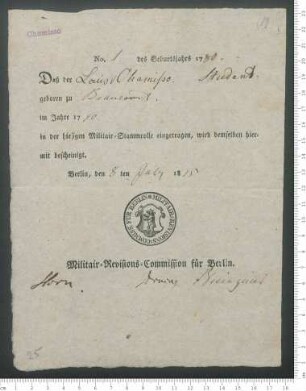 Chamisso
No. 1 des Geburtsjahrs 1780.
Daß der Louis Chamisso, Student
geboren zu Boncourt
im Jahre 1780
in der hiesigen Militair-Stammrolle eingetragen, wird demselben hier-
mit bescheinigt.
Berlin, den 5 ten July 1815
Militair-Revisions-Commission für Berlin.
25